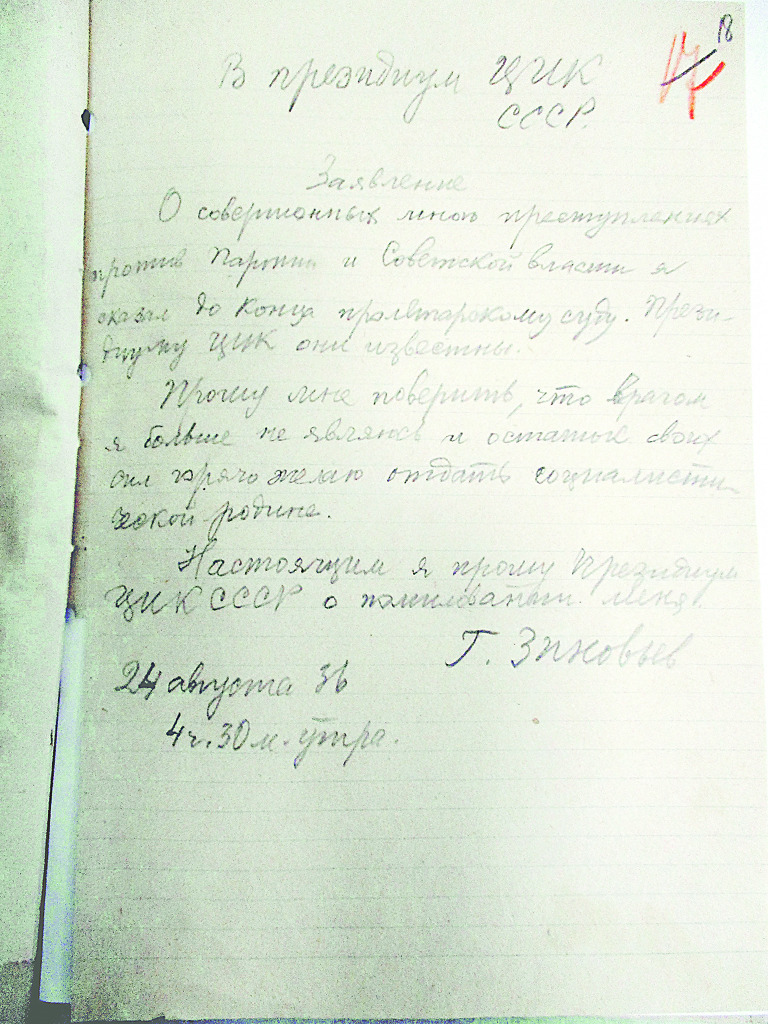 18
17
В президиум ЦИК
СССР.
Заявление
О совершонных мною преступлениях
против Партии и Советской власти я
сказал до конца пролетарскому суду. Прези-
диуму ЦИК они известны.
Прошу мне поверить, что врагом
я больше не являюсь и остаток своих
сил горячо желаю отдать социалисти-
ческой родине.
Настоящим я прошу Президиум
ЦИК СССР о помиловании меня.
Г. Зиновьев
24 августа 36
4 ч. 30 м. утра.